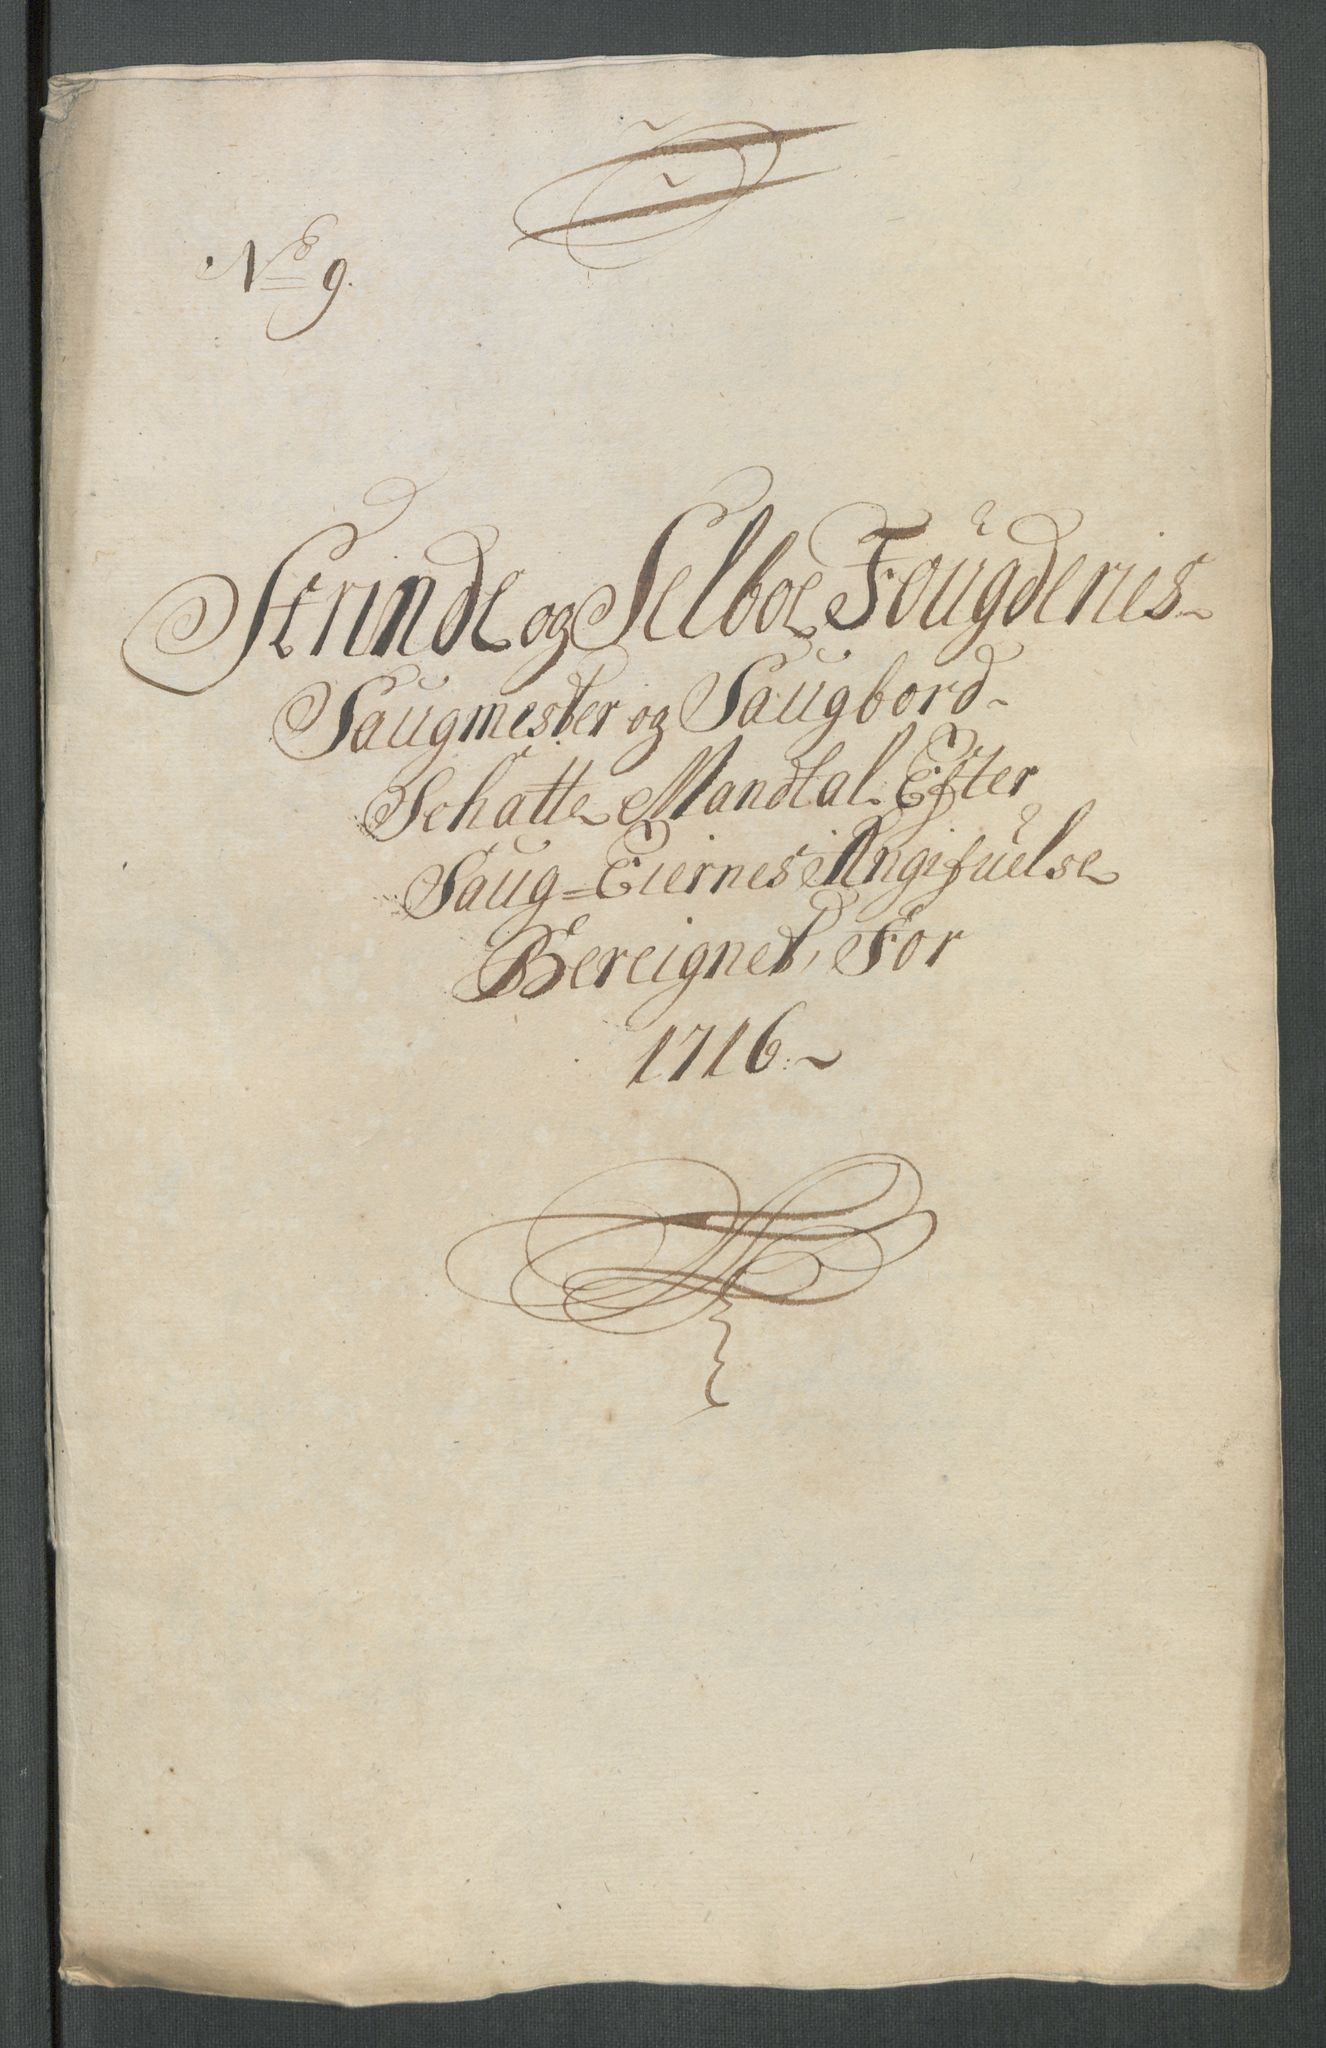 No 9.
Strinde og Selboe Fougderies
Saugmester og Saugbord-
Schatte Mandtal Efter
Saug=Eiernes Angifuelse
Bereignet, For
1716